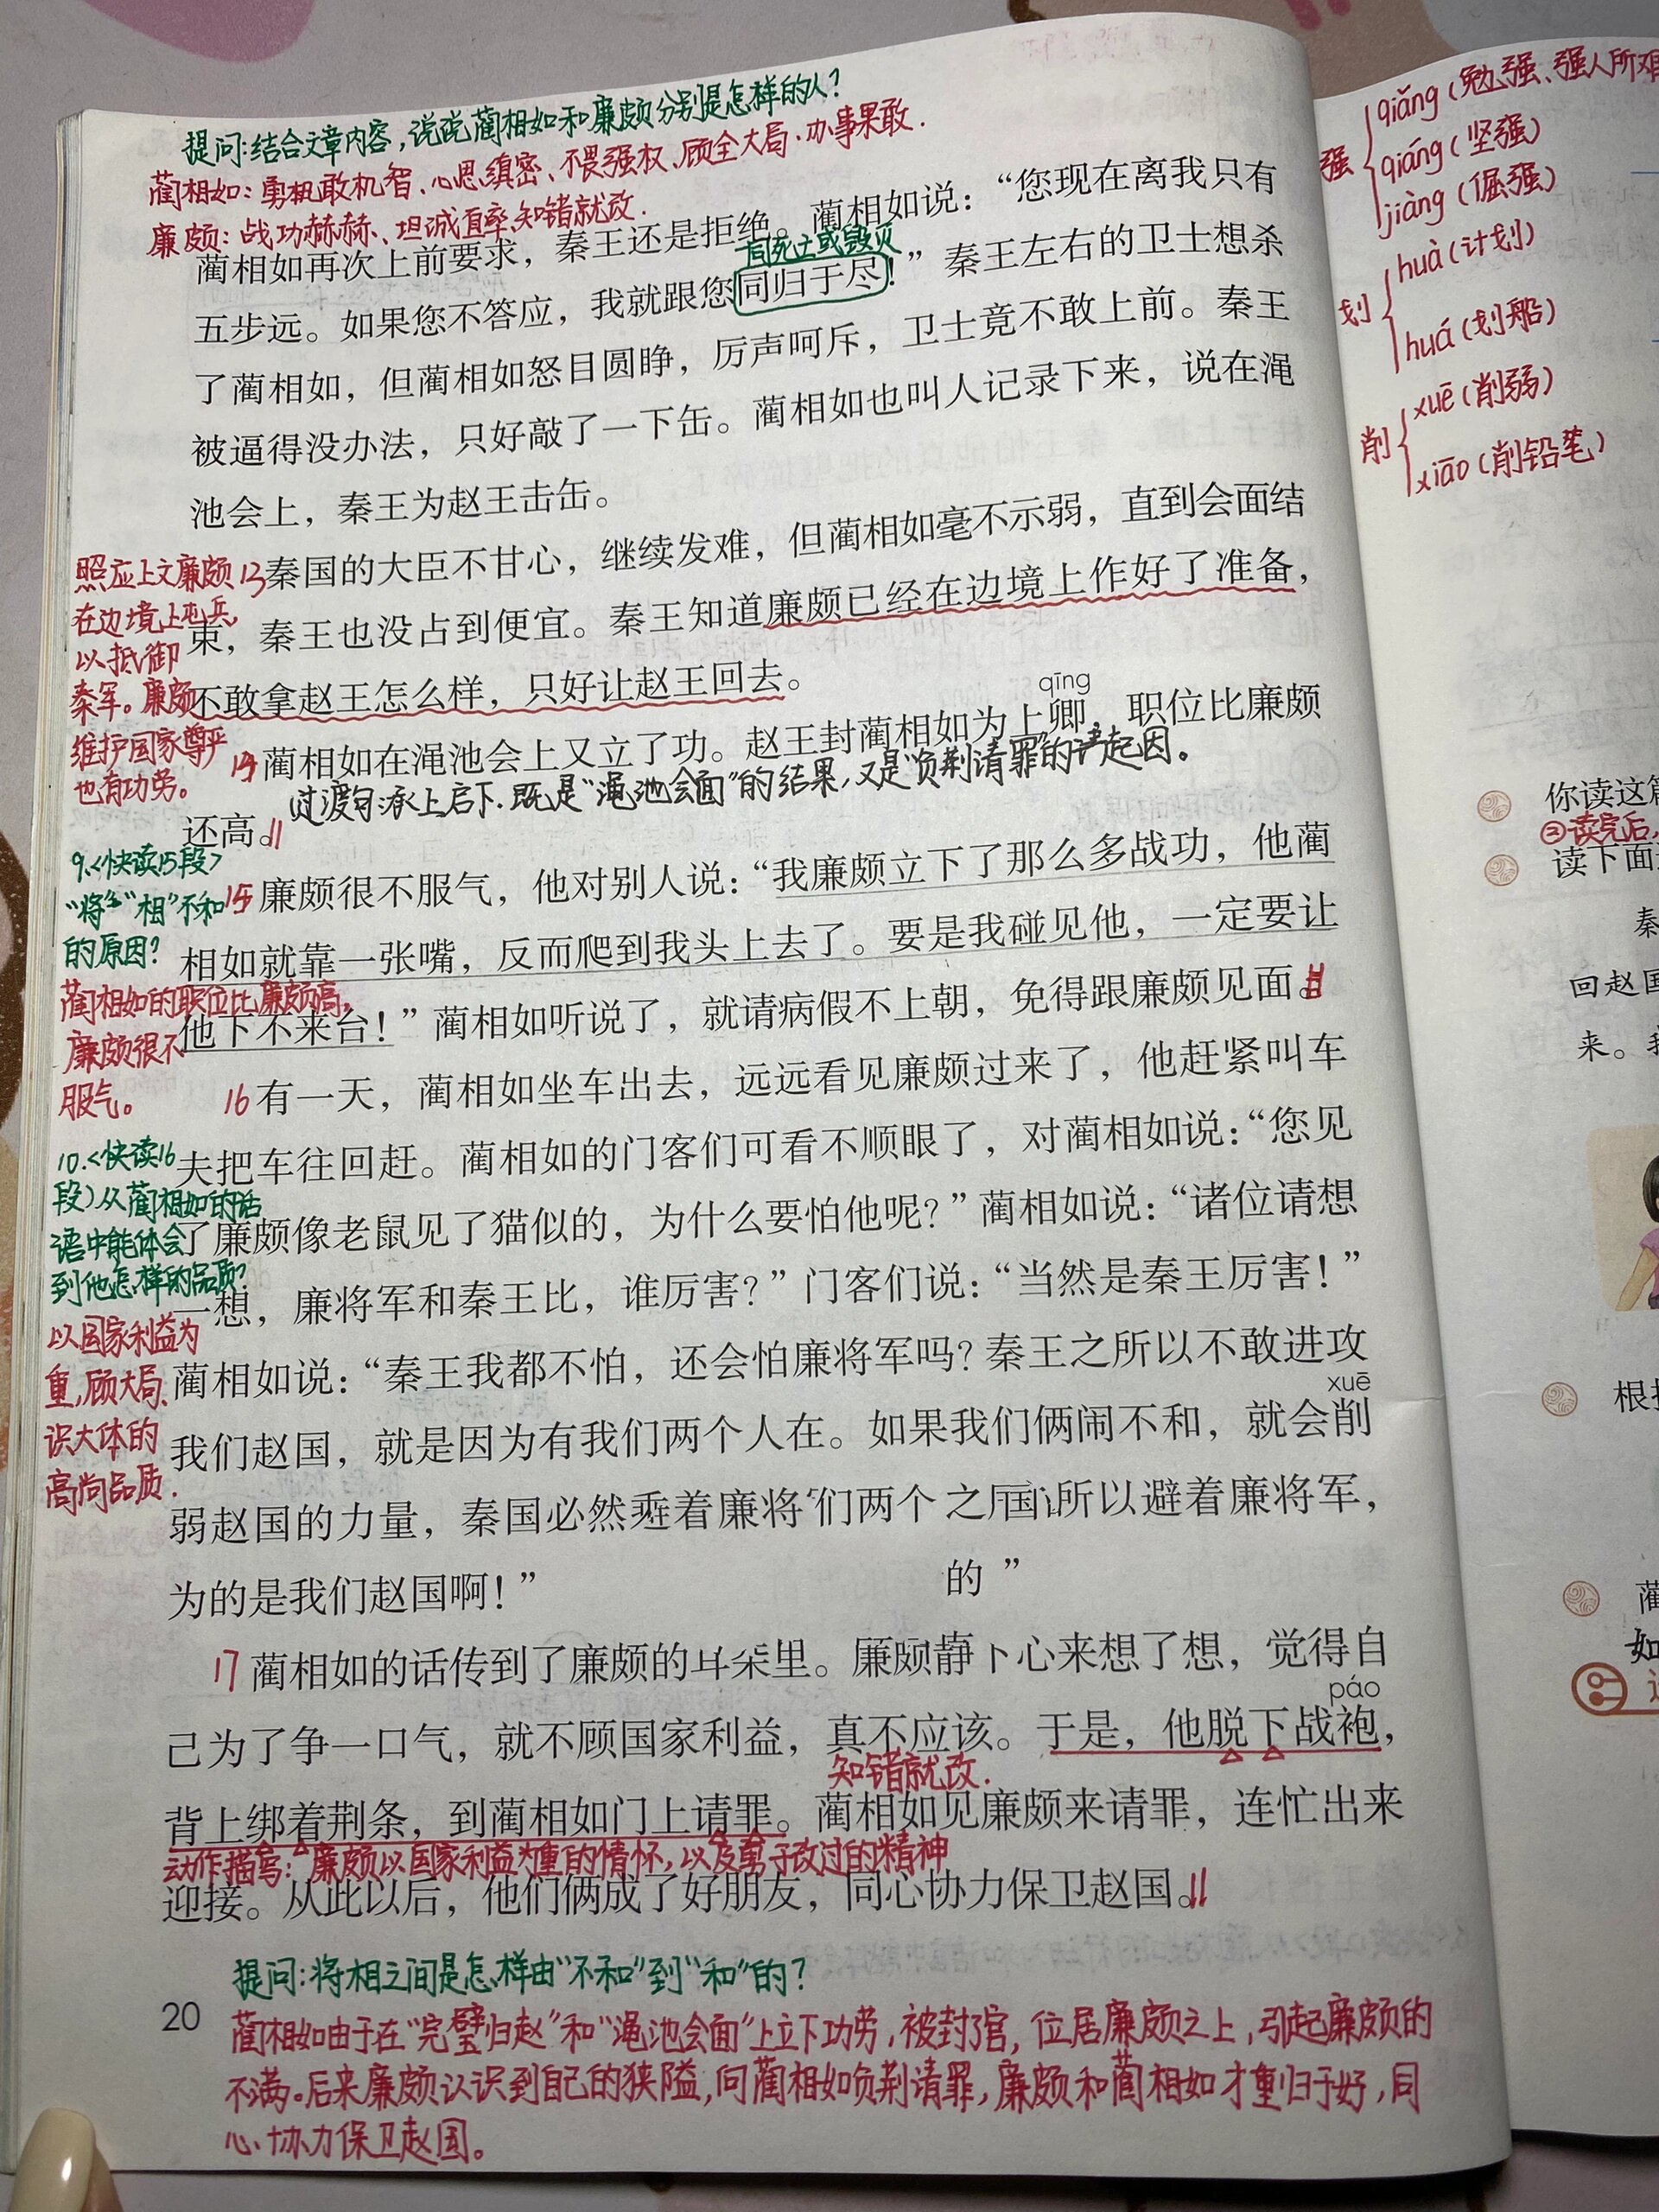 提问:结合文章内容,说说蔺相如和廉颇分别是怎样的人?
蔺相如:勇敢机智、心思缜密、不畏强权、顾全大局.办事果敢.
廉颇:战功赫赫、坦诚直率、知错就改.
蔺相如再次上前要求，秦王还是拒绝。蔺相如说：“您现在离我只有
同死亡或毁灭
五步远。如果您不答应，我就跟您同归于尽！”秦王左右的卫士想杀
了蔺相如，但蔺相如怒目圆睁，厉声呵斥，卫士竟不敢上前。秦王
被逼得没办法，只好敲了一下缶。蔺相如也叫人记录下来，说在渑
池会上，秦王为赵王击缶。
13秦国的大臣不甘心，继续发难，但蔺相如毫不示弱，直到会面结
束，秦王也没占到便宜。秦王知道廉颇已经在边境上作好了准备，
不敢拿赵王怎么样，只好让赵王回去。
照应上文廉颇
在边境上屯兵,
以抵御
秦军。廉颇
维护国家尊严
也有功劳。
qīng
14蔺相如在渑池会上又立了功。赵王封蔺相如为上卿，职位比廉颇
过渡句:承上启下.既是“渑池会面”的结果,又是“负荆请罪”的起因。
还高。
9.<快读15段>
“将”“相”不和
的原因?
蔺相如的职位比廉颇高,
廉颇很不
服气。
15廉颇很不服气，他对别人说：“我廉颇立下了那么多战功，他蔺
相如就靠一张嘴，反而爬到我头上去了。要是我碰见他，一定要让
他下不来台！”蔺相如听说了，就请病假不上朝，免得跟廉颇见面。
16有一天，蔺相如坐车出去，远远看见廉颇过来了，他赶紧叫车
夫把车往回赶。蔺相如的门客们可看不顺眼了，对蔺相如说：“您见
了廉颇像老鼠见了猫似的，为什么要怕他呢？”蔺相如说：“诸位请想
一想，廉将军和秦王比，谁厉害？”门客们说：“当然是秦王厉害！”
蔺相如说：“秦王我都不怕，还会怕廉将军吗？秦王之所以不敢进攻
xuē
我们赵国，就是因为有我们两个人在。如果我们俩闹不和，就会削
弱赵国的力量，秦国必然 着廉将 们两个 之 国 所以避着廉将军，
为的是我们赵国啊！”
的 ”
10.<快读16
段>从蔺相如的话
语中能体会
到他怎样的品质?
以国家利益为
重,顾大局、
识大体的
高尚品质.
17蔺相如的话传到了廉颇的耳朵里。廉颇静下心来想了想，觉得自
páo
己为了争一口气，就不顾国家利益，真不应该。于是，他脱下战袍，
知错就改.
背上绑着荆条，到蔺相如门上请罪。蔺相如见廉颇来请罪，连忙出来
动作描写:廉颇以国家利益为重的情怀,以及勇于改过的精神
迎接。从此以后，他们俩成了好朋友，同心协力保卫赵国。
提问:将相之间是怎样由“不和”到“和”的?
蔺相如由于在“完璧归赵”和“渑池会面”上立下功劳,被封官,位居廉颇之上,引起廉颇的
不满。后来廉颇认识到自己的狭隘,向蔺相如负荆请罪,廉颇和蔺相如才重归于好,同
心协力保卫赵国。
20
强
qiǎng(勉强、强人所难
qiáng(坚强)
jiàng(倔强)
划
huà(计划)
huá(划船)
削
xuē(削弱)
xiāo(削铅笔)
你读这篇
②读完后,
读下面
秦
回赵国
来。我
根据
蔺
如